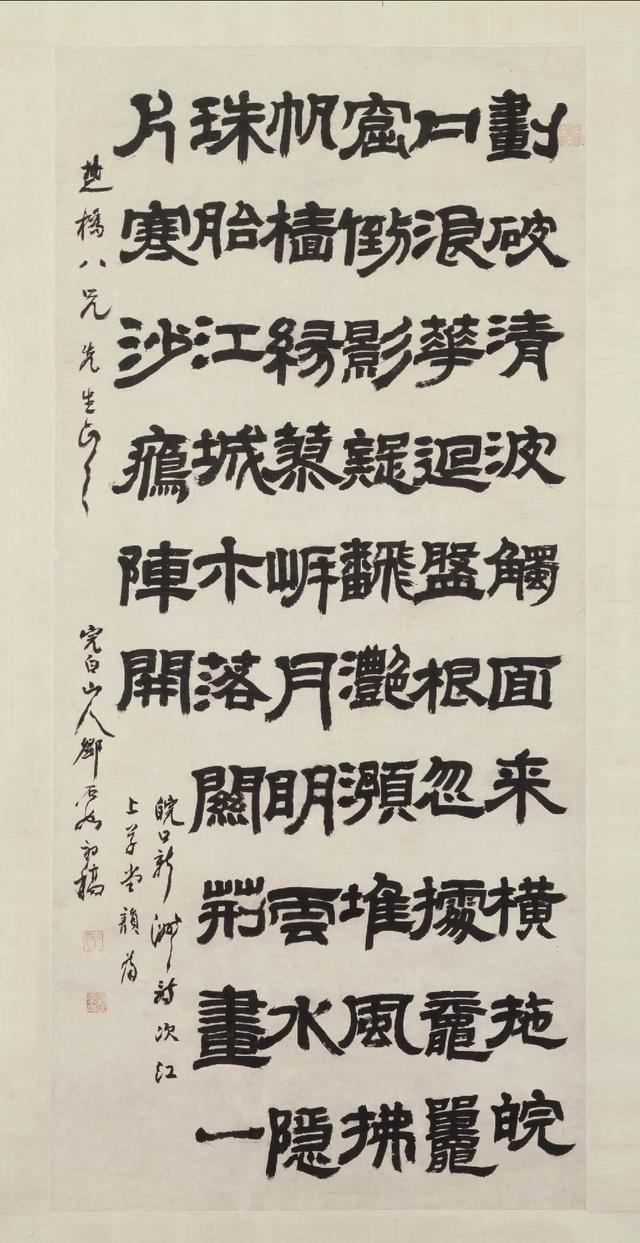 劃破清波觸面来橫拖皖
口浪華迴盤根忽據黿鼉
窟倒影疑飜灧澦堆風拂
帆檣緣蓼岸月明雲水隱
珠胎江城木落關荊畫一
片寒沙鴈陣開
皖口新洲詩次江
上草堂韻為
楚橋八兄先生正之
完白山人鄧石如初稿